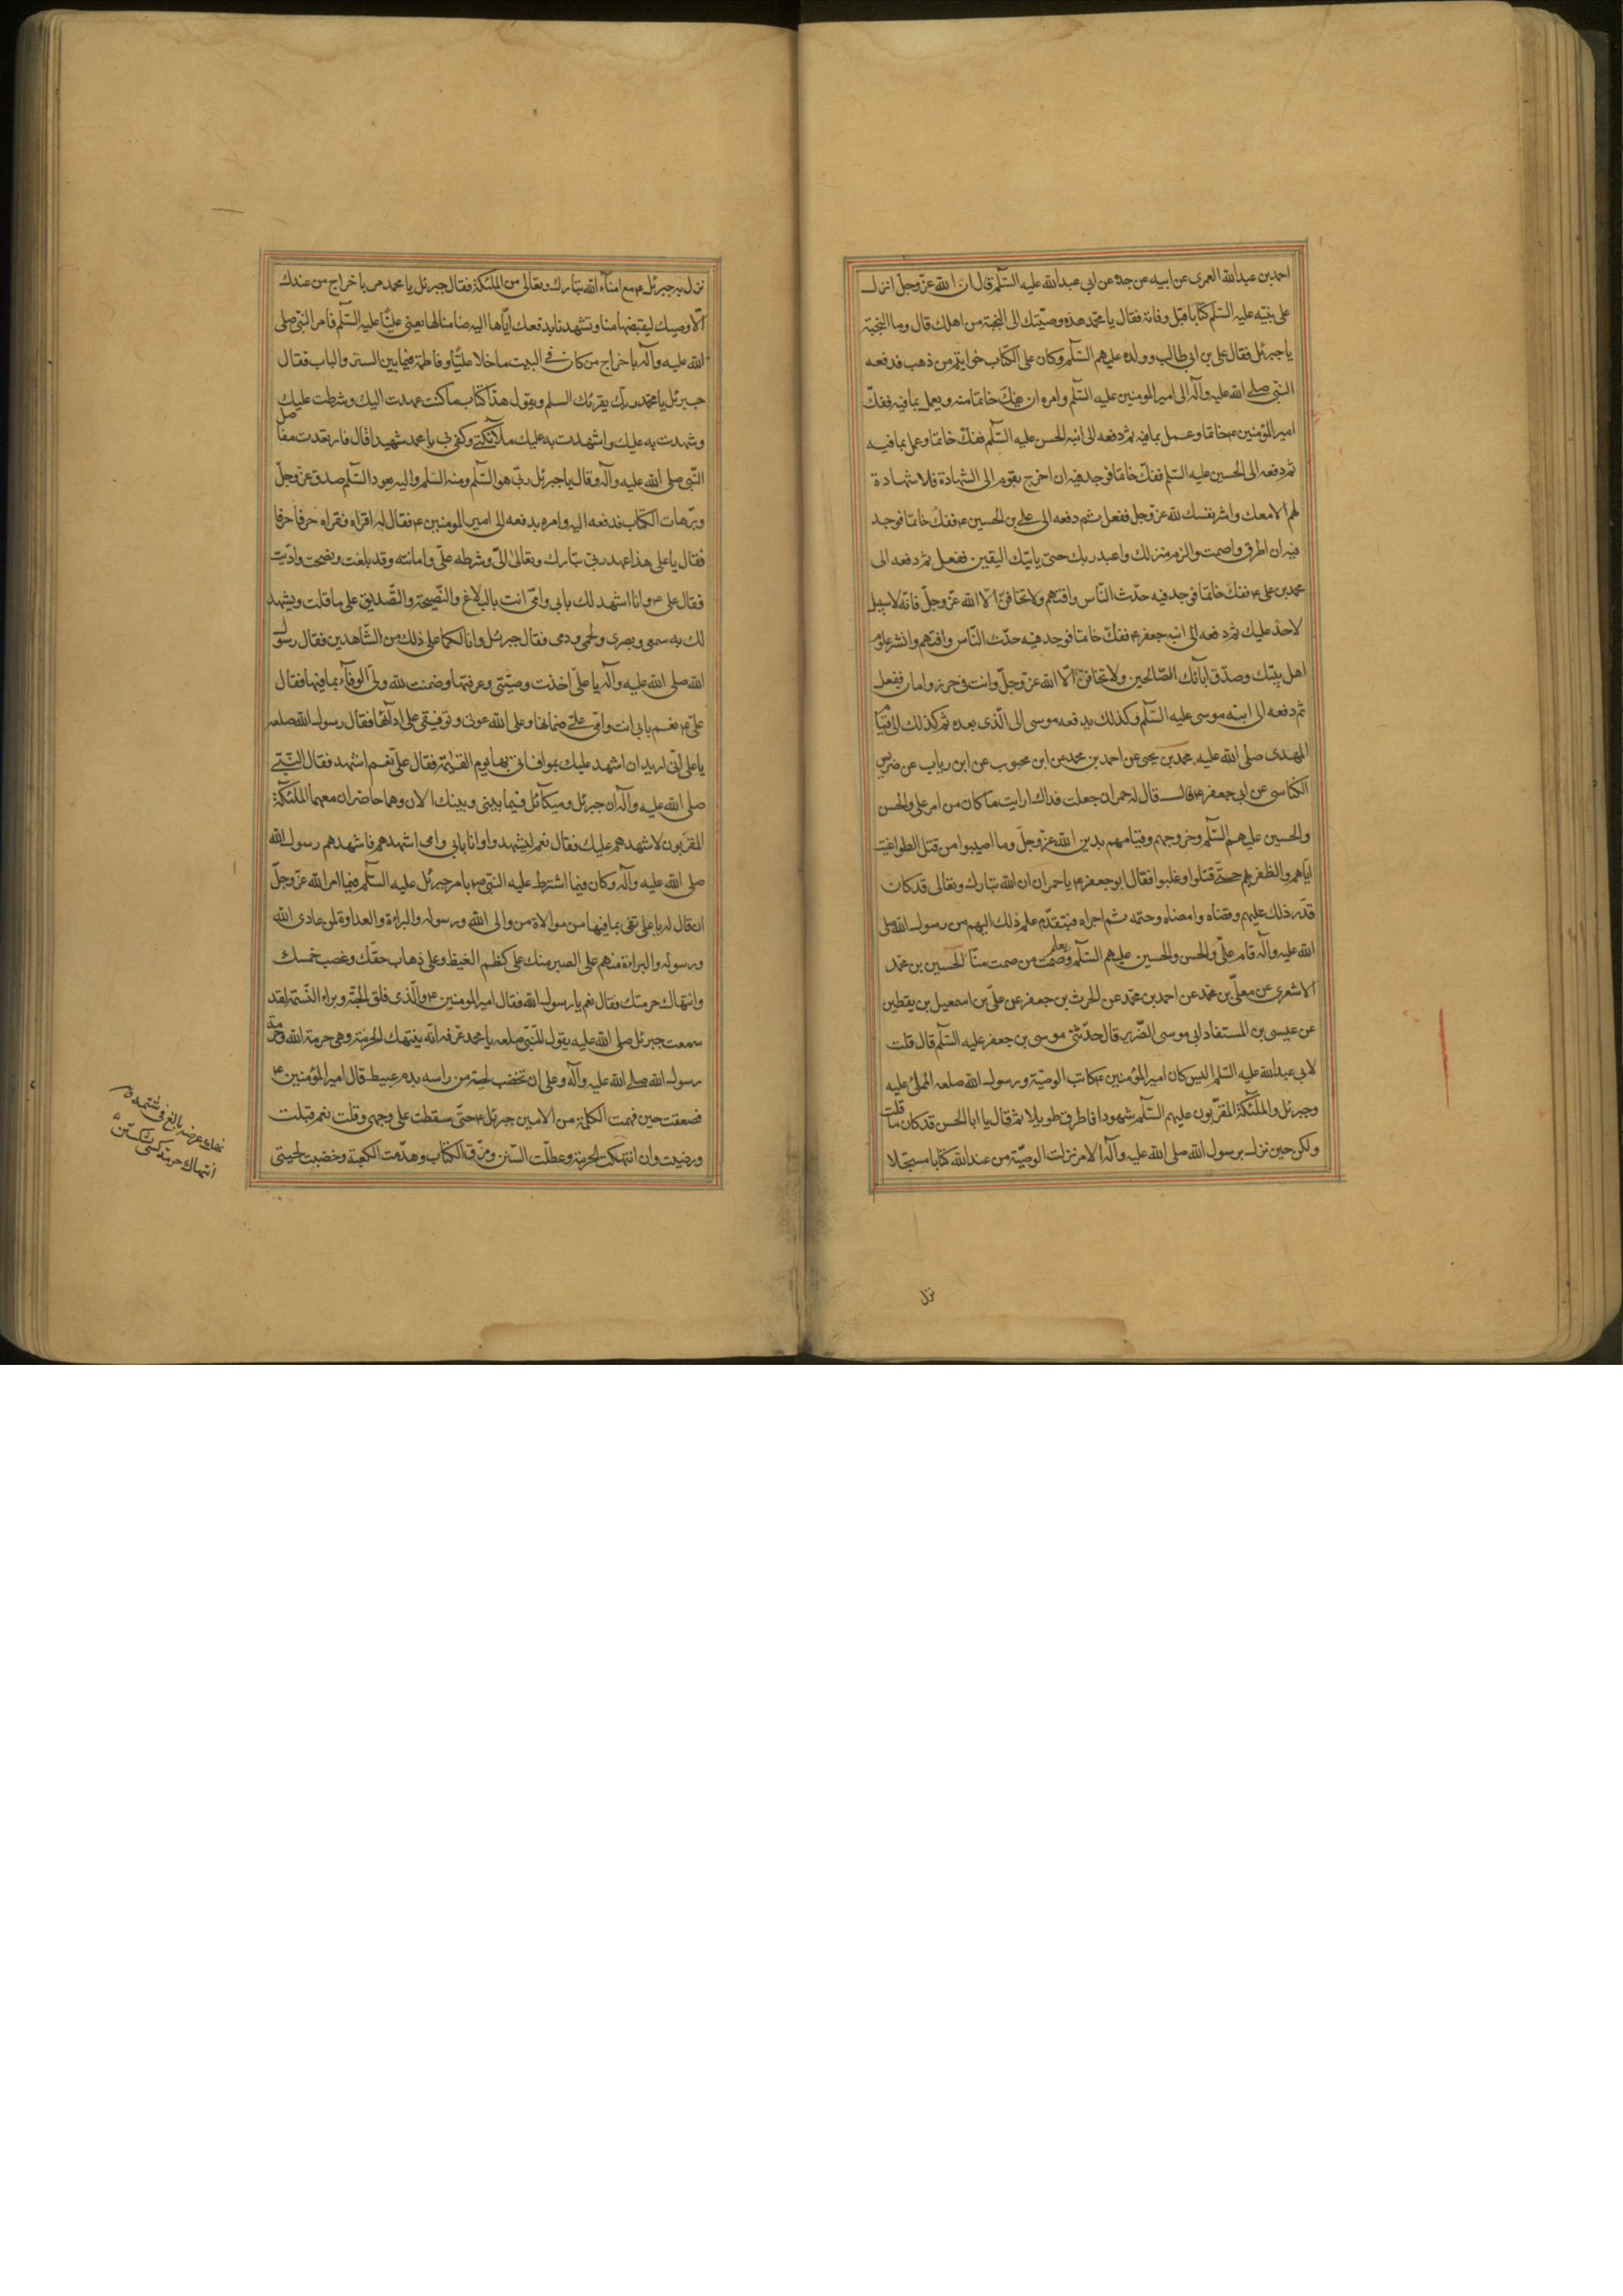 احمد بن عبدالله العمری عن ابیه عن جده عن ابی عبدالله علیه السّلم قال ان الله عزّ وجلّ انزل
علی نبیّه علیه السّلم کتابا قبل وفاته فقال یا محمّد هذه وصیّتك الی النجبة من اهلك قال وما النجبة
یا جبرئل فقال علی بن ابی طالب وولده علیهم السّلم وکان علی الکتاب خواتیم من ذهب فدفعه
النبی صلی الله علیه وآله الی امیر المومنین علیه السّلم وامره ان یفكّ خاتما منه ویعمل بما فیه ففكّ
امیر المؤمنین ع خاتما وعمل بما فیه ثم دفعه الی ابنه الحسن علیه السّلم ففكّ خاتما وعمل بما فیه
ثم دفعه الی الحسین علیه السّلم ففكّ خاتما فوجد فیه ان اخرج بقوم الی الشهادة فلا شهادة
لهم الا معك واشر نفسك لله عزّ وجلّ ففعل ثم دفعه الی علی بن الحسین ع ففكّ خاتما فوجد
فیه ان اطرق واصمت والزم منزلك واعبد ربك حتی یاتیك الیقین ففعل ثم دفعه الی
محمد بن علی ع ففكّ خاتما فوجد فیه حدّث الناس وافتهم ولا تخافنّ الّا الله عزّ وجلّ فانّه لا سبیل
لاحد علیك ثم دفعه الی ابنه جعفر ع ففكّ خاتما فوجد فیه حدّث النّاس وافتهم وانشر علوم
اهل بیتك وصدّق ابائك الصّالحین ولا تخافنّ الّا الله عزّ وجلّ وانت فی حرز وامان ففعل
ثم دفعه الی ابنه موسی علیه السّلم وکذلك یدفعه موسی الی الّذی بعده ثم کذلك الی قیام
المهدی صلی الله علیه محمد بن یحیی عن احمد بن محمد عن ابن محبوب عن ابن رباب عن ضریس
الکناسی عن ابی جعفر ع قال قال له حمران جعلت فداك ارایت ما کان من امر علی والحسن
والحسین علیهم السّلم وخروجهم وقیامهم بدین الله عزّ وجلّ وما اصیبوا من قتل الطواغیت
ایاهم والظفر بهم حتّی قتلوا وغلبوا فقال ابو جعفر ع یا حمران ان الله تبارك وتعالی قد کان
قدّر ذلك علیهم وقضاه وامضاه وحتمه ثم اجراه فبتقدّم علم ذلك الیهم من رسول الله صلی
الله علیه وآله قام علیّ والحسن والحسین علیهم السّلم وبعلم صمت من صمت منّا الحسین بن محمّد
الاشعری عن معلّی بن محمّد عن احمد بن محمّد عن الحرث بن جعفر عن علیّ بن اسمعیل بن یقطین
عن عیسی بن المستفاد ابی موسی الضّریر قال حدّثنی موسی بن جعفر علیه السّلم قال قلت
لابی عبدالله علیه السّلم الیس کان امیر المؤمنین ع کاتب الوصیّة ورسول الله صلعم المملی علیه
وجبرئل والملئکة المقرّبون علیهم السّلم شهود قال فاطرق طویلا ثم قال یا ابا الحسن قد کان ما قلت
ولکن حین نزل برسول الله صلی الله علیه وآله الامر نزلت الوصیّة من عند الله کتابا مسجّلا
نزل
نزل به جبرئل ع مع امنآء الله تبارك وتعالی من الملئکة فقال جبرئل یا محمد مر باخراج من عندك
الّا وصیك لیقبضها منا وتشهدنا بدفعك ایّاها الیه ضامنا لها یعنی علیّا علیه السّلم فامر النبی صلی
الله علیه وآله باخراج من کان فی البیت ما خلا علیّا وفاطمة فیما بین الستر والباب فقال
جبرئل یا محمّد ربّك یقرئك السلم ویقول هذا کتاب ما کنت عهدت الیك وشرطت علیك
وشهدت به علیك واشهدت به علیك ملآئکتی وکفی بی یا محمد شهیدا قال فارتعدت مفاصل
النّبی صلی الله علیه وآله وقال یا جبرئل ربّی هو السّلم ومنه السّلم والیه یعود السّلم صدق عزّ وجلّ
وبرّ هات الکتاب فدفعه الیه وامره بدفعه الی امیر المومنین ع فقال له اقراه فقراه حرفا حرفا
فقال یا علی هذا عهد ربّی تبارك وتعالی الیّ وشرطه علیّ وامانته وقد بلغت ونصحت وادّیت
فقال علی ع وانا اشهد لك بابی وامّی انت بالبلاغ والنّصیحة والصّدیق علی ما قلت ویشهد
لك به سمعی وبصری ولحمی ودمی فقال جبرئل وانا لکما علی ذلك من الشّاهدین فقال رسول
الله صلی الله علیه وآله یا علیّ اخذت وصیّتی وعرفتها وضمنت لله ولی الوفآء بما فیها فقال
علیّ ع نعم بابی انت وامّی علیّ ضمانها وعلی الله عونی وتوفیقی علی ادآئها فقال رسول الله صلعم
یا علی انّی ارید ان اشهد علیك بموافاتی بها یوم القیٰمة فقال علیّ نعم اشهد فقال النّبیّ
صلی الله علیه وآله ان جبرئل ومیکآئل فیما بینی وبینك الان وهما حاضران معهما الملئکة
المقرّبون لاشهدهم علیك فقال نعم لیشهدوا وانا بابی وامی اشهدهم فاشهدهم رسول الله
صلی الله علیه وآله وکان فیما اشترط علیه النبی ص بامر جبرئل علیه السّلم فیما امر الله عزّ وجلّ
ان قال له یا علی تفی بما فیها من موالاة من والی الله ورسوله والبراءة والعداوة لمن عادی الله
ورسوله والبراءة منهم علی الصبر منك علی کظم الغیظ وعلی ذهاب حقّك وغصب خمسك
وانتهاك حرمتك فقال نعم یا رسول الله فقال امیر المومنین ع والّذی فلق الحبّة وبراء النّسمة لقد
سمعت جبرئل صلی الله علیه یقول للنّبی صلعم یا محمد عرّفه انّه ینتهك الحرمة وهی حرمة الله وحرمة
رسول الله صلی الله علیه وآله وعلی ان تخضب لحیته من راسه بدم عبیط قال امیر المؤمنین ع
فصعقت حین فهمت الکلمة من الامین جبرئل ع حتّی سقطت علی وجهی وقلت نعم قبلت
ورضیت وان انتهکت الحرمة وعطلّت السّنن ومزّق الکتاب وهدّمت الکعبة وخضبت لحیتی
نهك عرضه بالغ فی شتمه ق
انتهاك حرمة کسی شکستن